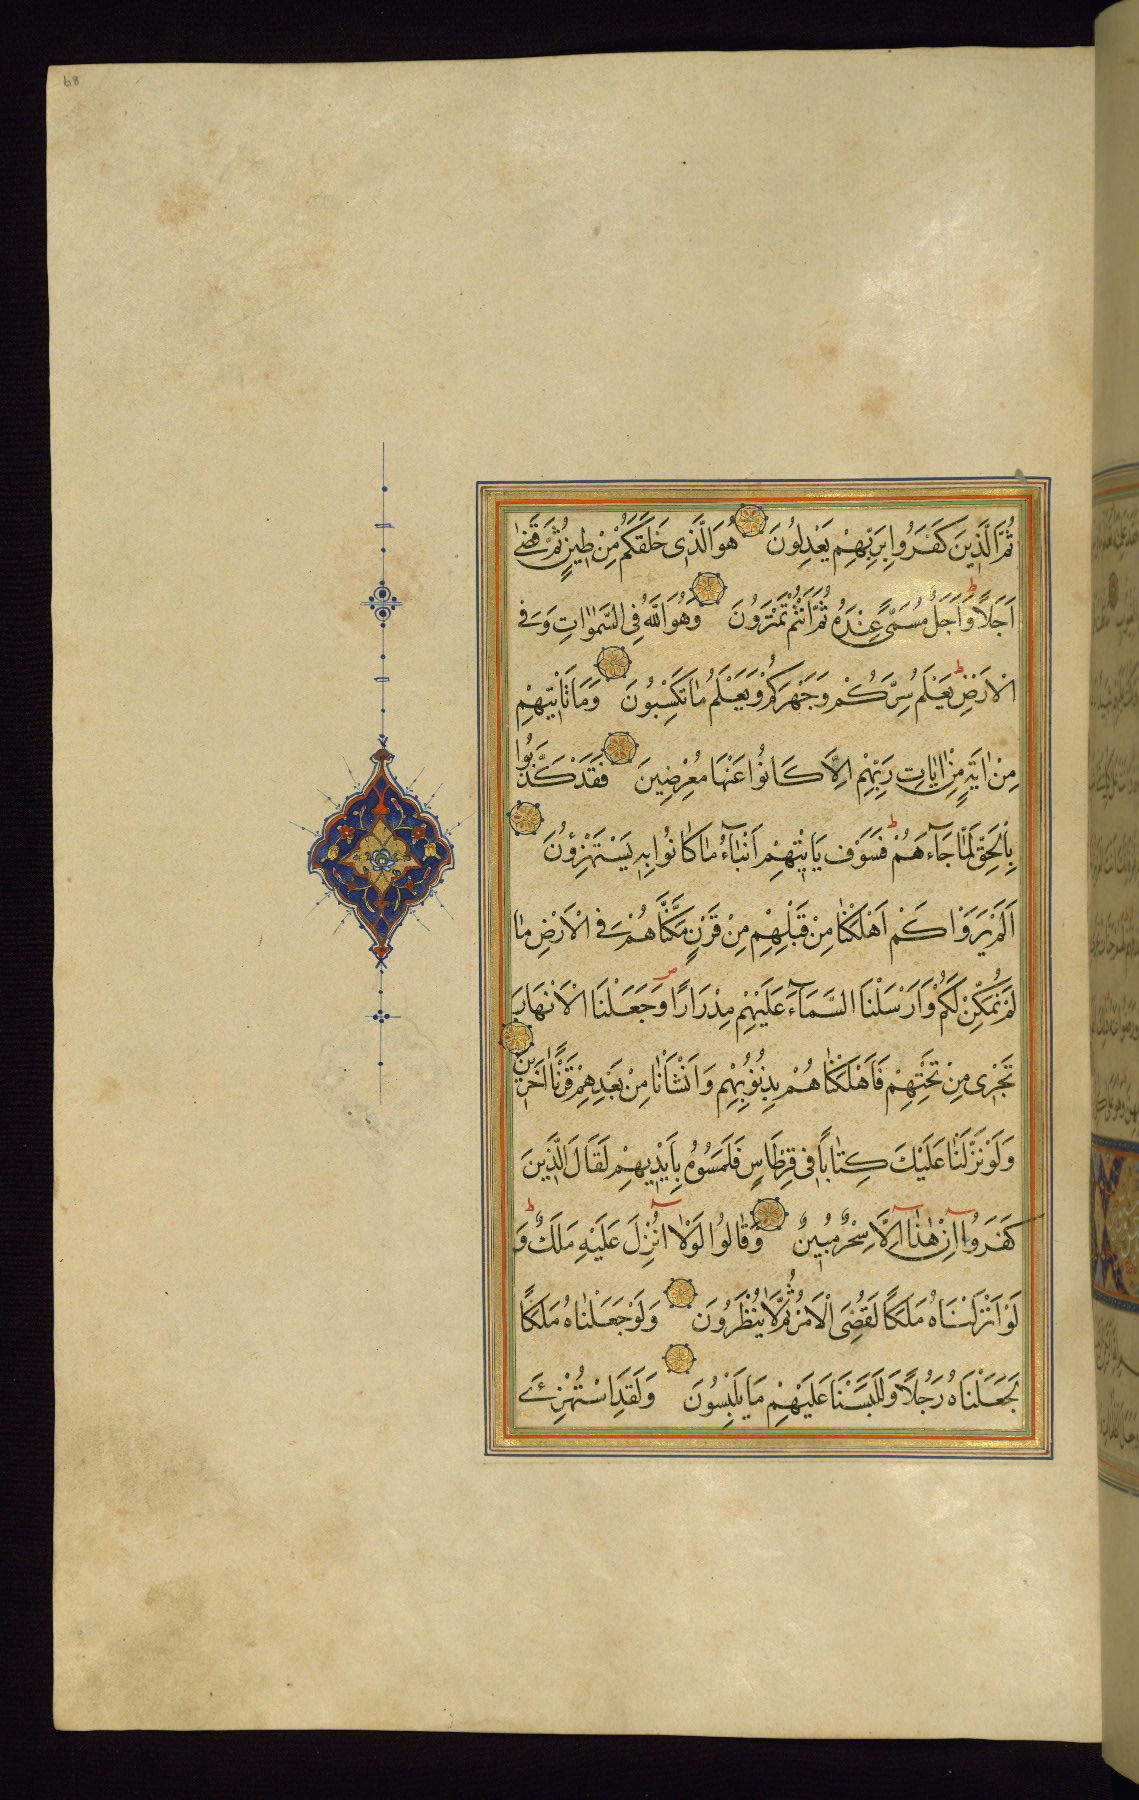 ثُمَّ الَّذِينَ كَفَرُوا بِرَبِّهِمْ يَعْدِلُونَ هُوَ الَّذِى خَلَقَكُمْ مِنْ طِينٍ ثُمَّ قَضٰى
اَجَلًا ط وَاَجَلٌ مُسَمًّى عِنْدَهُ ثُمَّ اَنْتُمْ تَمْتَرُونَ وَهُوَ اللّٰهُ فِى السَّمٰوَاتِ وَفِى
الْاَرْضِ ط يَعْلَمُ سِرَّكُمْ وَجَهْرَكُمْ وَيَعْلَمُ مَا تَكْسِبُونَ وَمَا تَاْتِيهِمْ
مِنْ اٰيَةٍ مِنْ اٰيَاتِ رَبِّهِمْ اِلَّا كَانُوا عَنْهَا مُعْرِضِينَ فَقَدْ كَذَّبُوا
بِالْحَقِّ لَمَّا جَآءَهُمْ ط فَسَوْفَ يَاْتِيهِمْ اَنْبَآءُ مَا كَانُوا بِهِ يَسْتَهْزِؤُنَ
اَلَمْ يَرَوْا كَمْ اَهْلَكْنَا مِنْ قَبْلِهِمْ مِنْ قَرْنٍ مَكَّنَّاهُمْ فِى الْاَرْضِ مَا
لَمْ نُمَكِّنْ لَكُمْ وَاَرْسَلْنَا السَّمَآءَ عَلَيْهِمْ مِدْرَارًا ص وَجَعَلْنَا الْاَنْهَارَ
تَجْرِى مِنْ تَحْتِهِمْ فَاَهْلَكْنَاهُمْ بِذُنُوبِهِمْ وَاَنْشَاْنَا مِنْ بَعْدِهِمْ قَرْنًا اٰخَرِينَ
وَلَوْ نَزَّلْنَا عَلَيْكَ كِتَابًا فِى قِرْطَاسٍ فَلَمَسُوهُ بِاَيْدِيهِمْ لَقَالَ الَّذِينَ
كَفَرُوآ اِنْ هٰذَآ اِلَّا سِحْرٌ مُبِينٌ وَقَالُوا لَوْلَآ اُنْزِلَ عَلَيْهِ مَلَكٌ ط وَ
لَوْ اَنْزَلْنَاهُ مَلَكًا لَقُضِىَ الْاَمْرُ ثُمَّ لَا يُنْظَرُونَ وَلَوْ جَعَلْنَاهُ مَلَكًا
لَجَعَلْنَاهُ رَجُلًا وَلَلَبَسْنَا عَلَيْهِمْ مَا يَلْبِسُونَ وَلَقَدِ اسْتُهْزِئَ
68